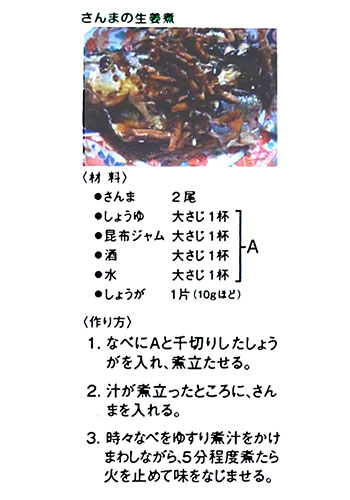 さんまの生姜煮
〈材 料〉
●さんま 2尾
●しょうゆ 大さじ1杯
●昆布ジャム 大さじ1杯
●酒 大さじ1杯
●水 大さじ1杯
A
●しょうが 1片(10gほど)
〈作り方〉
1. なべにAと千切りしたしょう
がを入れ、煮立たせる。
2. 汁が煮立ったところに、さん
まを入れる。
3. 時々なべをゆすり煮汁をかけ
まわしながら、5分程度煮たら
火を止めて味をなじませる。